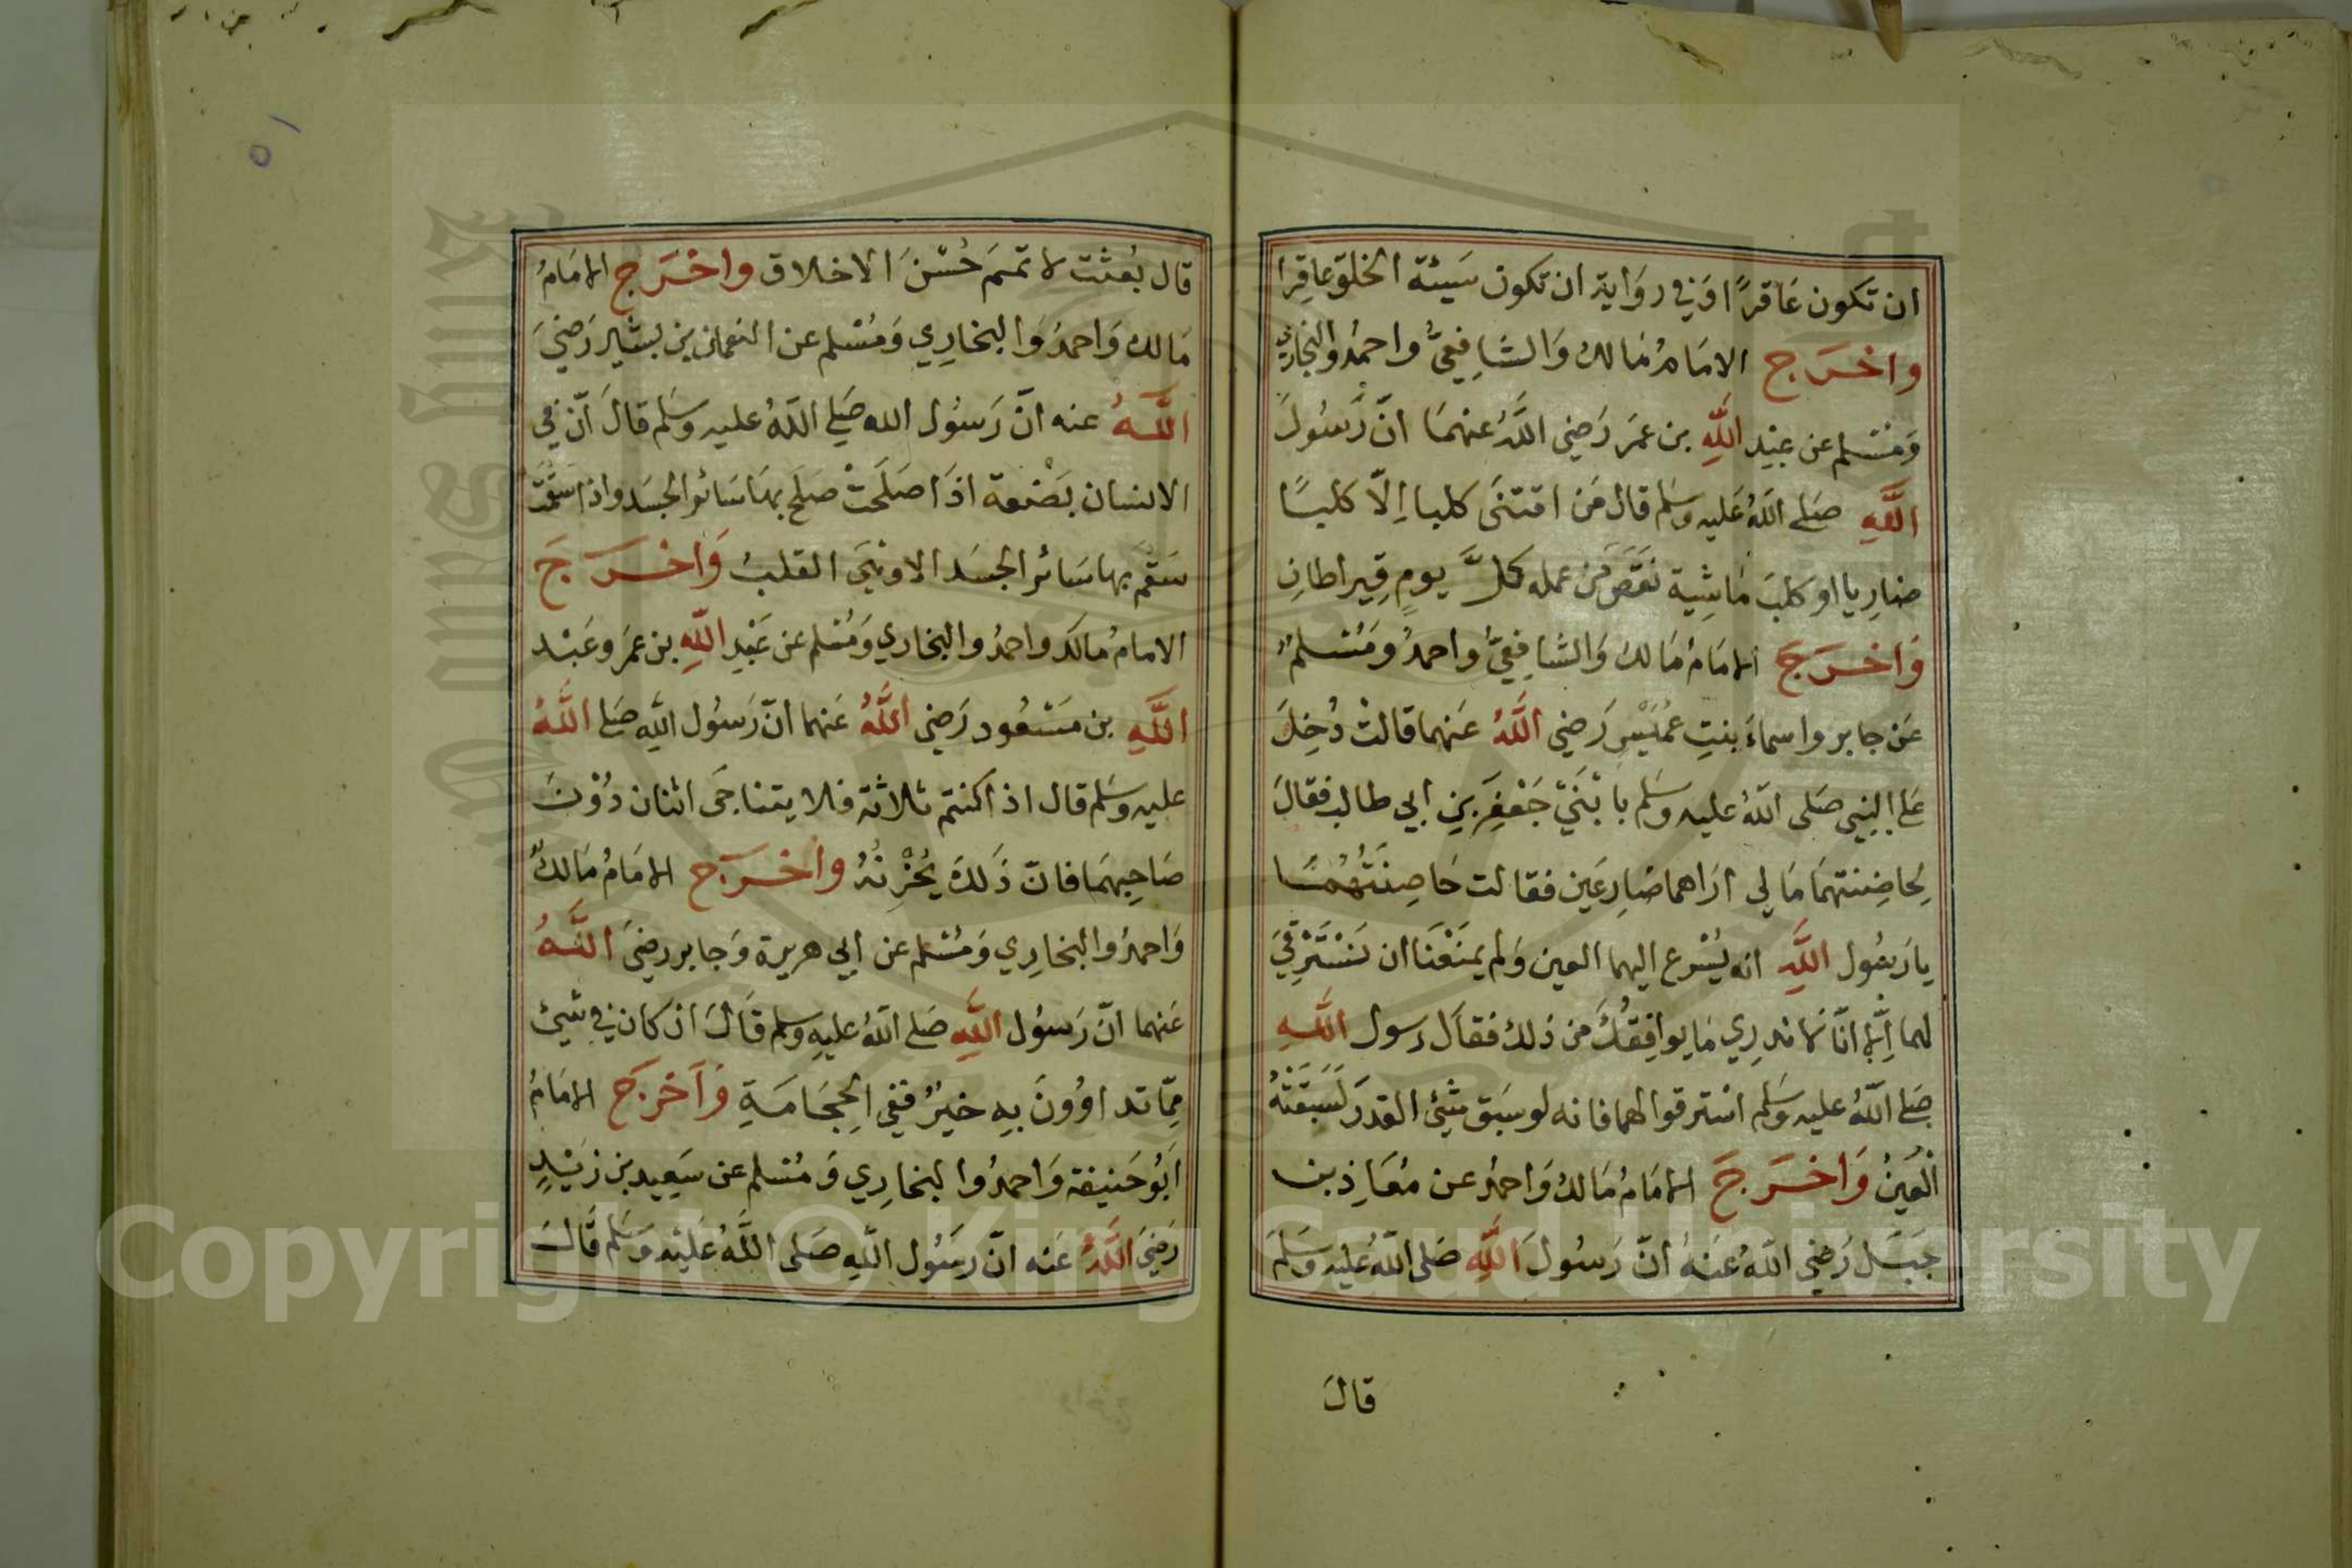 ان تكون عَاقرًا وَفي روَاية ان تكون سَيئة الخلق عاقِرا
واخرَج الامَامُ مَالك وَالشافِعيُّ واحمدُ والبخاري
وَمُسْلم عن عبْدِ اللَّهِ بن عمَر رَضي اللَّهُ عنهمَا انّ رَسُولَ
اللَّهِ صَلى اللَّهُ عَليه وسَلم قال مَن اقتنَى كلبا اِلّا كلبًا
ضارِيا او كلبَ مَاشِية نقَصَ مِن عمله كلَّ يومٍ قِيراطانِ
وَاخرَجَ الامَامُ مَالك وَالشافِعيُّ واحمدُ ومُسْلمٌ
عَن جابر واسماءَ بنتِ عُمَيْسٍ رَضي اللَّهُ عَنهما قالتْ دُخِلَ
عَلى النبي صَلى اللَّهُ عليه وسَلم بابْنَيْ جَعْفَرَ بنِ ابي طالب فقالَ
لِحاضِنتهمَا مَا لي ارَاهما ضارِعَين فقالت حَاضِنَتُهُمَا
يا رَسُول اللَّهِ انه يُسْرع اليهما العين وَلم يمنَعْنا ان نَسْتَرْقِيَ
لهما اِلّا انّا لا ندرِي مَا يوافِقُكَ من ذلك فقال رسول اللَّهِ
صَلى اللَّهُ عليه وسَلم اسْترقوا لهما فانه لو سَبق شيْئ القدَر لَسَبَقَتْهُ
الْعينُ وَاخرَجَ الامَامُ مَالك وَاحمدُ عن مُعَاذِ بن
جَبَل رَضي اللَّهُ عَنهُ انّ رَسُولَ اللَّهِ صَلى اللَّهُ عليه وسَلمَ
قالَ
٥١
قال بُعثت لاتمّمَ حُسْنَ الاخلاق واخْرَج الامَامُ
مَالك وَاحمدُ وَالبخارِي وَمُسْلم عن النعمان بن بشير رَضيَ
اللَّهُ عنه انّ رَسُول الله صَلى اللَّهُ عليه وسَلم قالَ انّ في
الانسان بَضْعة اذَا صَلَحَتْ صلَح بهَا سَائر الجسَد واذا سَقُمَت
سَقُمَ بها سَائر الجسَد الا وهيَ القلبُ وَاخرَجَ
الامامُ مالك واحمدُ والبخاري وَمُسْلم عن عَبْدِ اللَّهِ بن عمَر وعَبْد
اللَّهِ بن مسْعُود رَضي اللَّهُ عنهما انّ رَسُول اللَّهِ صَلى اللَّهُ
عليه وسَلم قال اذا كنتم ثلاثة فلا يتناجَى اثنان دُوْنَ
صَاحِبهمَا فانّ ذَلكَ يُحْزِنُهُ واخرَج الامَامُ مَالكٌ
وَاحمدُ والبخارِي وَمُسْلم عن ابي هريرة وَجابر رضيَ اللَّهُ
عَنهما انّ رَسُول اللَّهِ صَلى اللَّهُ عليهِ وسلم قَالَ ان كان في شيئ
مِمّا تداوُونَ بهِ خيرٌ ففي الحِجَامَةِ وَاخرَجَ الامَامُ
اَبُو حَنيفة وَاحمدُ والبخارِي وَمُسْلم عن سَعِيد بن زَيْدٍ
رَضيَ اللَّهُ عَنه انّ رَسُول اللَّهِ صَلى اللَّهُ عَليْه وَسَلم قَالَ
Copyright © King Saud University